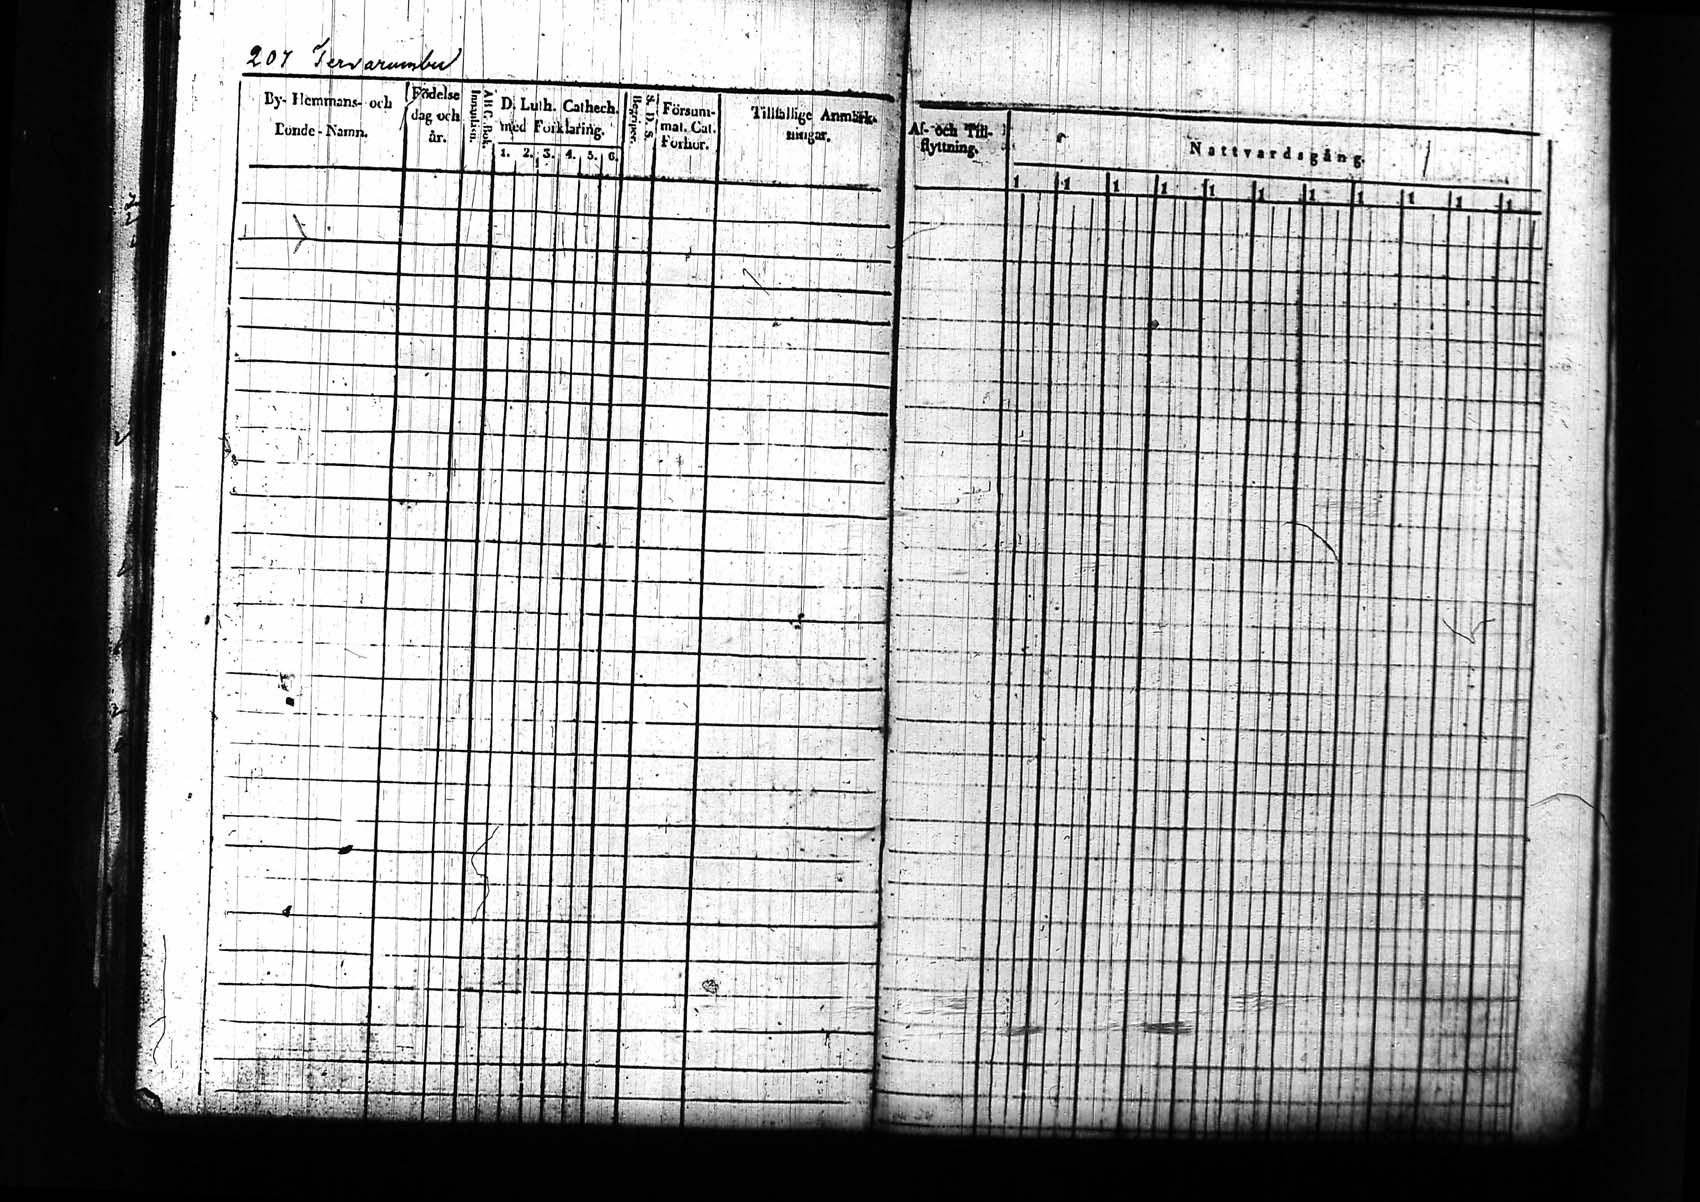 207 Tervarumbu
By- Hemmans- och
Bonde-Namn.
Födelse
dag och
år.
ABC-Bok.
Innanläsn.
D. Luth. Cathech.
med Förklaring.
1. 2. 3. 4. 5. 6.
S. D. S.
Begriper.
Försum-
mat. Cat.
Förhör.
Tillfällige Anmärk-
ningar.
Af- och Till-
flyttning.
Nattvardsgång.
1 1 1 1 1 1 1 1 1 1 1